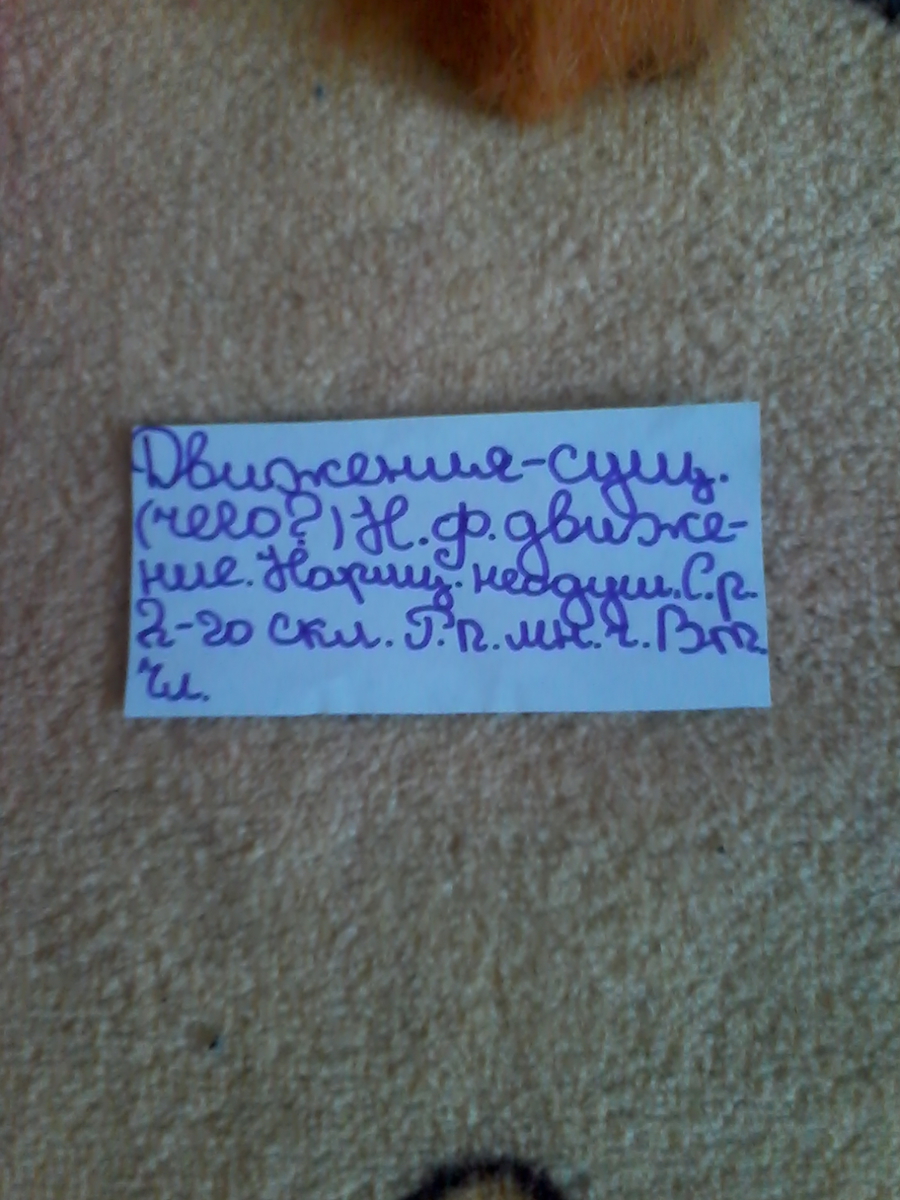 Движения-сущ.
(чего?) Н.ф. движе-
ние. Нариц. неодуш. С.р.
2-го скл. Р.п. мн.ч. Вт.
чл.